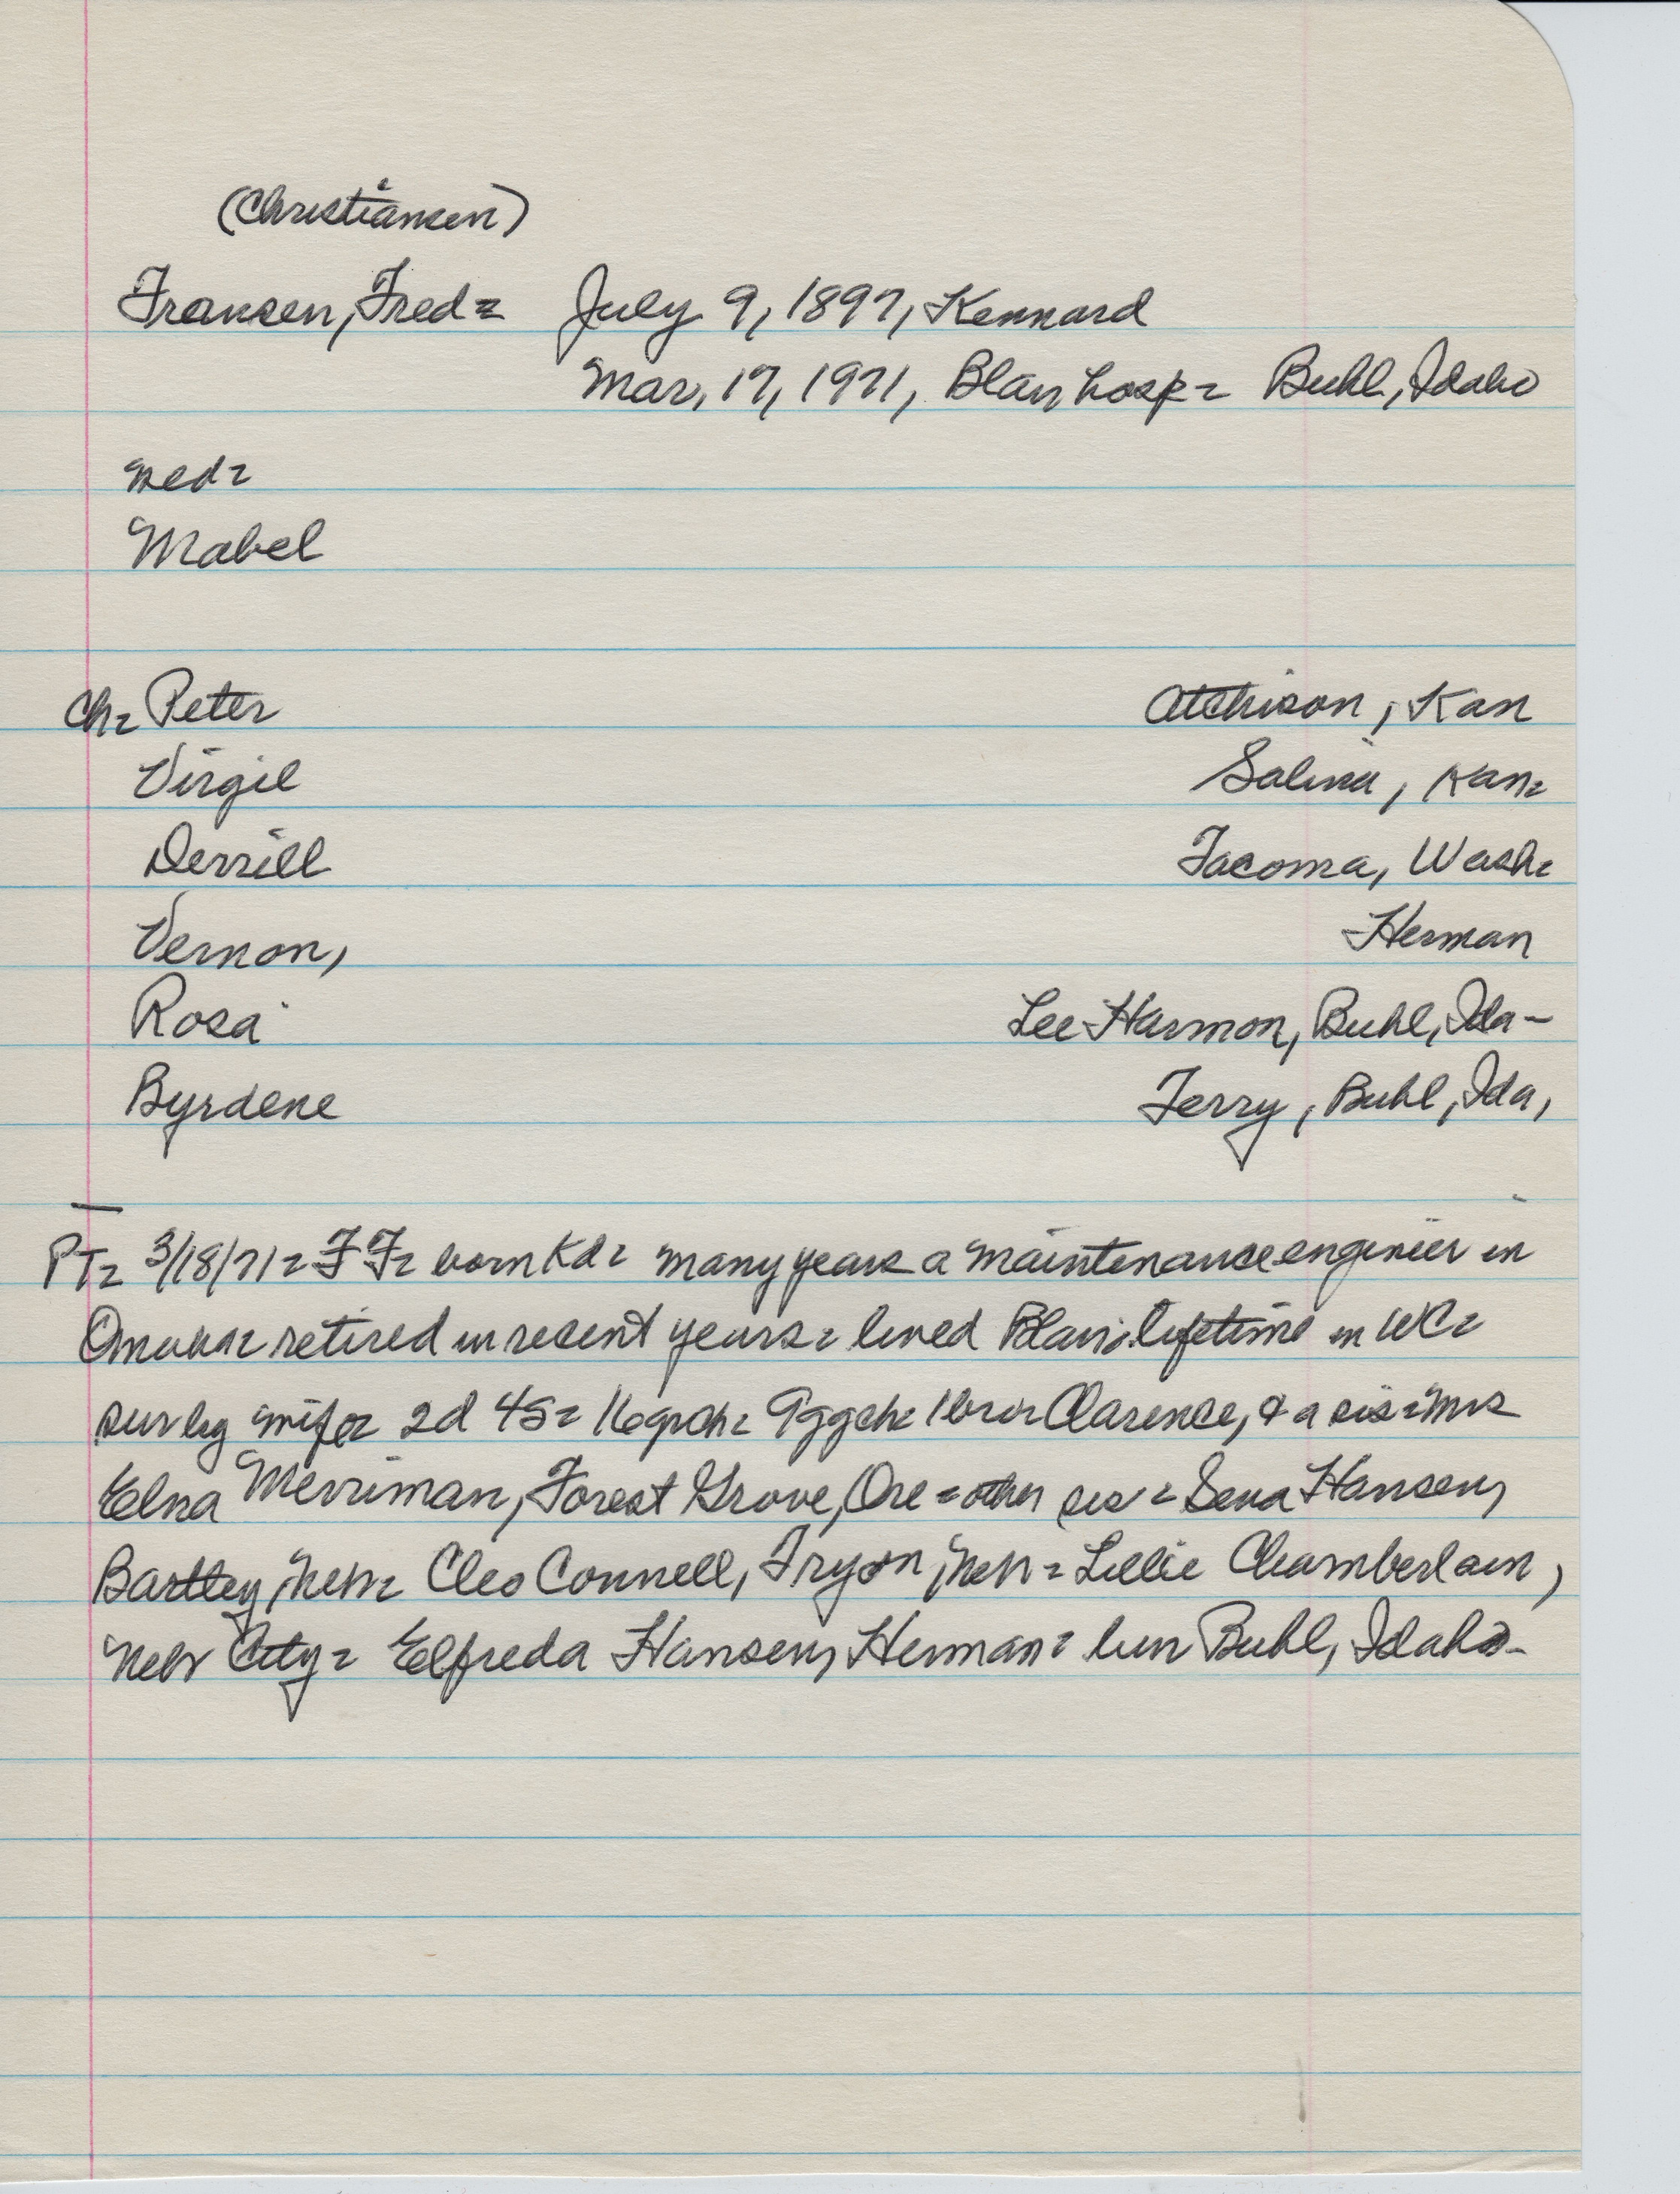 (Christiansen)
Fransen, Fred = July 9, 1897, Kennard
Mar, 17, 1971, Blair hosp = Buhl, Idaho
med =
Mabel
Ch = Peter Atchison, Kan
Virgil Salina, Kan =
Derrill Tacoma, Wash =
Vernon, Herman
Rosa Lee Harmon, Buhl, Ida -
Byrdene Terry, Buhl, Ida,
PT = 3/18/71 = F F = born Kd = many years a maintenance engineer in
Omaha = retired in resent years = lived Blair lifetime in WC =
sur by wife = 2d 4S = 16 grch = 9 ggch = 1 bro = Clarence, & a sis = Mrs
Elna Merriman, Forest Grove, Ore = other sis = Sena Hansen,
Bartley, Neb = Cleo Connell, Tryon, Neb = Lillie Chamberlain,
Nebr City = Elfreda Hansen, Herman = bur Buhl, Idaho -